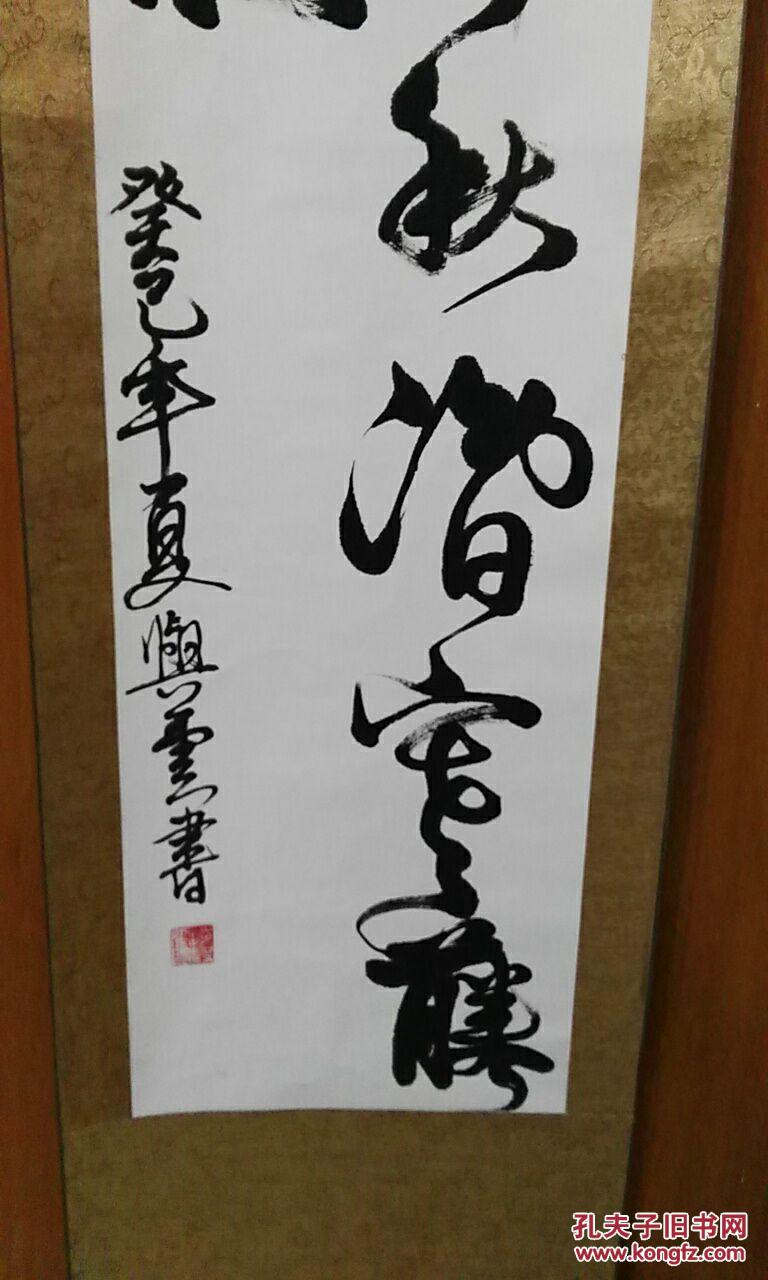 秋潛寒藤
癸巳年夏興雲書
孔夫子旧书网
www.kongfz.com